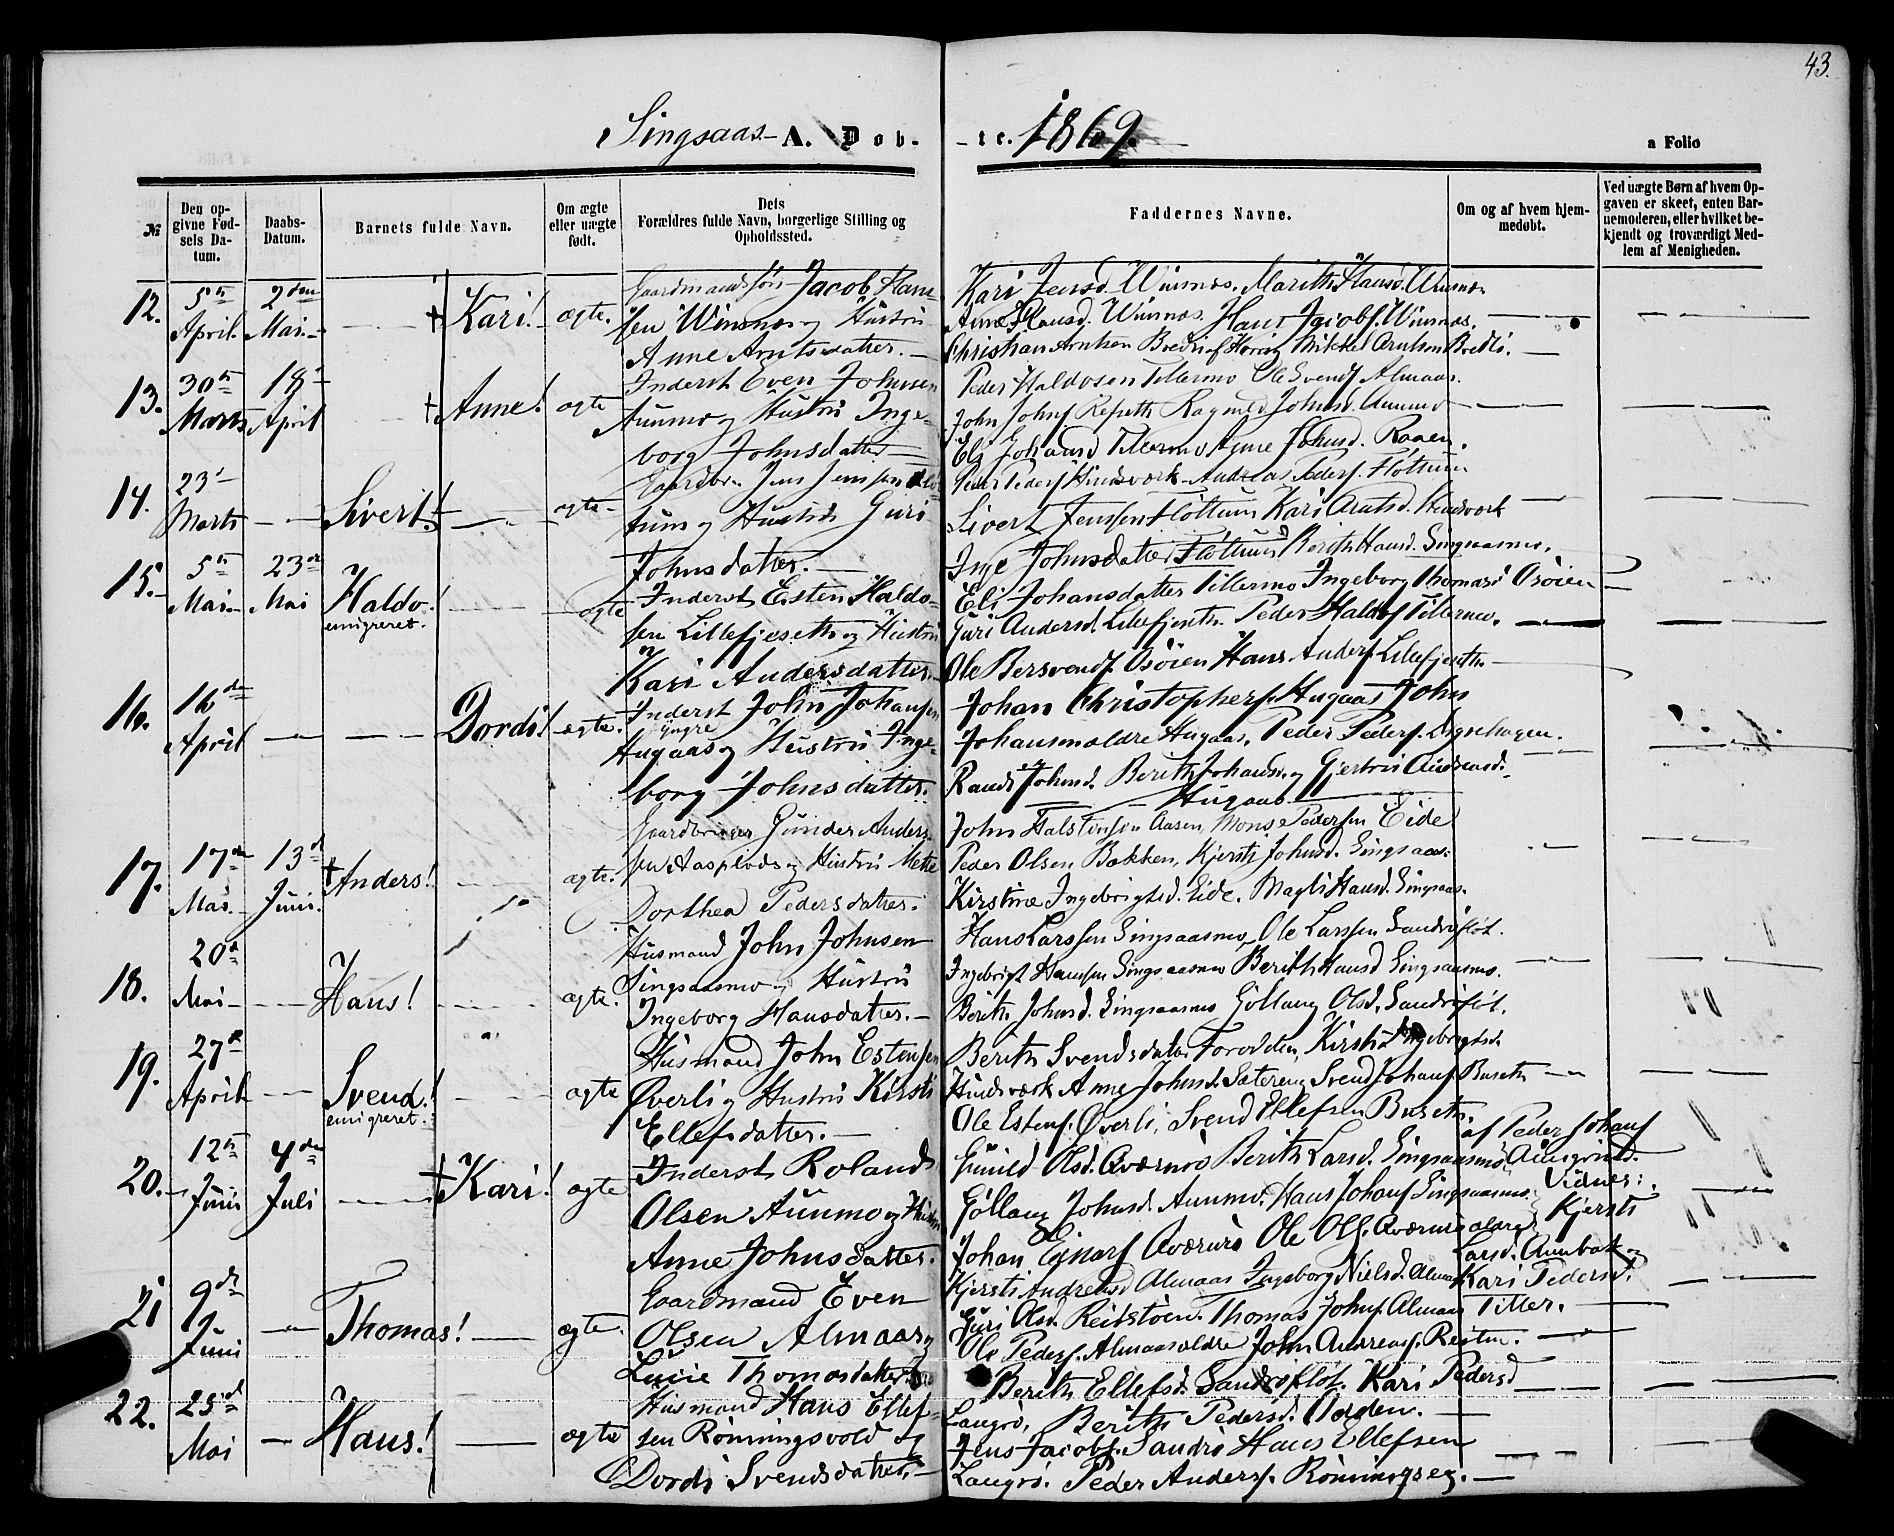 43.
Singsaas- A. Døb-te. 1869.
a Folio
№
Den opgivne Fødsels Datum.
Daabs-Datum.
Barnets fulde Navn.
Om ægte eller uægte født.
Dets Forældres fulde Navn, borgerlige Stilling og Opholdssted.
Faddernes Navne.
Om og af hvem hjemmedøbt.
Ved uægte Børn af hvem Opgaven er skeet, enten Barnemoderen, eller hvilket bekjendt og troværdigt Medlem af Menigheden.
12. 5te April 2den Mai † Kari! ægte.
Gaardmandssøn Jacob Han-
sen Winsnes og Hustru
Anne Arntsdatter.
Kari Jensd. Winsnes. Marith Hansd. Winsnes
Anne Hansd. Winsnes. Hans Jacobs. Winsnes.
Christian Arntsen Bredli af Horrig Mikkel Arntsen Bredli.
13. 30te Marts 18de April † Anne! ægte
Inderst Even Johnsen
Aunmo og Hustru Inge-
borg Johnsdatter
Peder Haldosen Tillermo Ole Svends. Almaas.
John Johns. Refseth Ragnild Johnsd. Aunmo
Eli Johansd Tillermo Anne Johnsd. Raaen.
14. 23de Marts Sivert! † ægte
Gaardbr. Jens Jenssen Flot-
tum og Hustru Guri
Johnsdatter.
Peder Peders. Hindsværk. Andreas Peders. Flottum
Sivert Jenssen Flottum Kari Arntsd. Hindsværk
Inge Johnsdatter Flottum Berith Hansd. Singsaasmo.
15. 5te Mai 23de Mai Haldo! ægte
emigreret.
Inderst Esten Haldo-
sen Lillefjeseth og Hustru
Kari Andersdatter.
Eli Johansdatter Tillermo Ingeborg Thomasd Osøien
Guri Andersd. Lillefjeseth. Peder Haldos Tillermo.
Ole Bersvends. Osøien Hans Anders. Lillefjeseth.
16. 16de April Dordi! ægte.
Inderst John Johansen
yngre
Hugaas og Hustru Inge-
borg Johnsdatter.
Johan Christophers. Hugaas John
Johansen ældre Hugaas, Peder Peders. Lignehagen.
Randi Johnsd. Berith Johansd. og Gjertru Andreasd.
Hugaas
17. 17de Mai 13de Juni † Anders! ægte.
Gaardbruger Gunder Anders-
sen Aasplads og Hustru Mette
Dorthea Pedersdatter.
John Halstensen Aasen, Mons Pedersen Eide
Peder Olsen Bakken, Kjersti Johnsd. Singsaas.
Kirstine Ingebrigtsd. Eide. Magli Hansd. Singsaas.
18. 20de Mai Hans! ægte.
Husmand John Johnsen
Singsaasmo og Hustru
Ingeborg Hansdatter.
Hans Larssen Singsaasmo, Ole Larssen Sandrøsløt.
Ingebrigt Hanssen Singsaasmo Berith Hansd Singsaasmo.
Berith Johnsd. Singsaasmo Gollaug Olsd. Sandrøsløt.
19. 27de April Svend! ægte
emigreret.
Husmand John Estensen
Øverli og Hustru Kirsti
Ellefsdatter.
Berith Svendsdatter Forodden, Kirsti Ingebrigtsd.
Hindsværk Anne Johnsd. Sætereng Svend Johans. Buseth
Ole Estens. Øverli, Svend Ellefsen Buseth.
20. 12te Juni 4de Juli † Kari! ægte
Inderst Roland
Olsen Aunmo og Hustru
Anne Johnsdatter.
Gunild Olsd. Averøe Berith Larsd. Singsaasmo
Gollaug Johnsd. Aunmo. Hans Johans Singsaasmo.
Johan Ejnars Ole Ols.
af Peder Johans
Vidner:
Kjersti
Larsd. Aunbak og
Kari Pedersd.
Tiller.
21 9de Juni Thomas! ægte
Gaardmand Even
Olsen Almaas og
Lucie Thomasdatter
Kjersti Andreasd Almaas Ingeborg Nielsd. Almaas
Guri Olsd. Reitstøen. Thomas Johns. Almaas
Ole Peders. Almaas ældre John Andreass. Reitan.
22. 25de Mai Hans! ægte
Husmand Hans Ellef-
sen Rønningsvold og
Dordi Svendsdatter.
Berith Ellefsd. Sandrøsløt. Kari Pedersd
Langrø. Berith Pedersd. Odden.
Jens Jacobs. Sandrø Hans Ellefsen
Langrø. Peder Anders. Rønningseg.